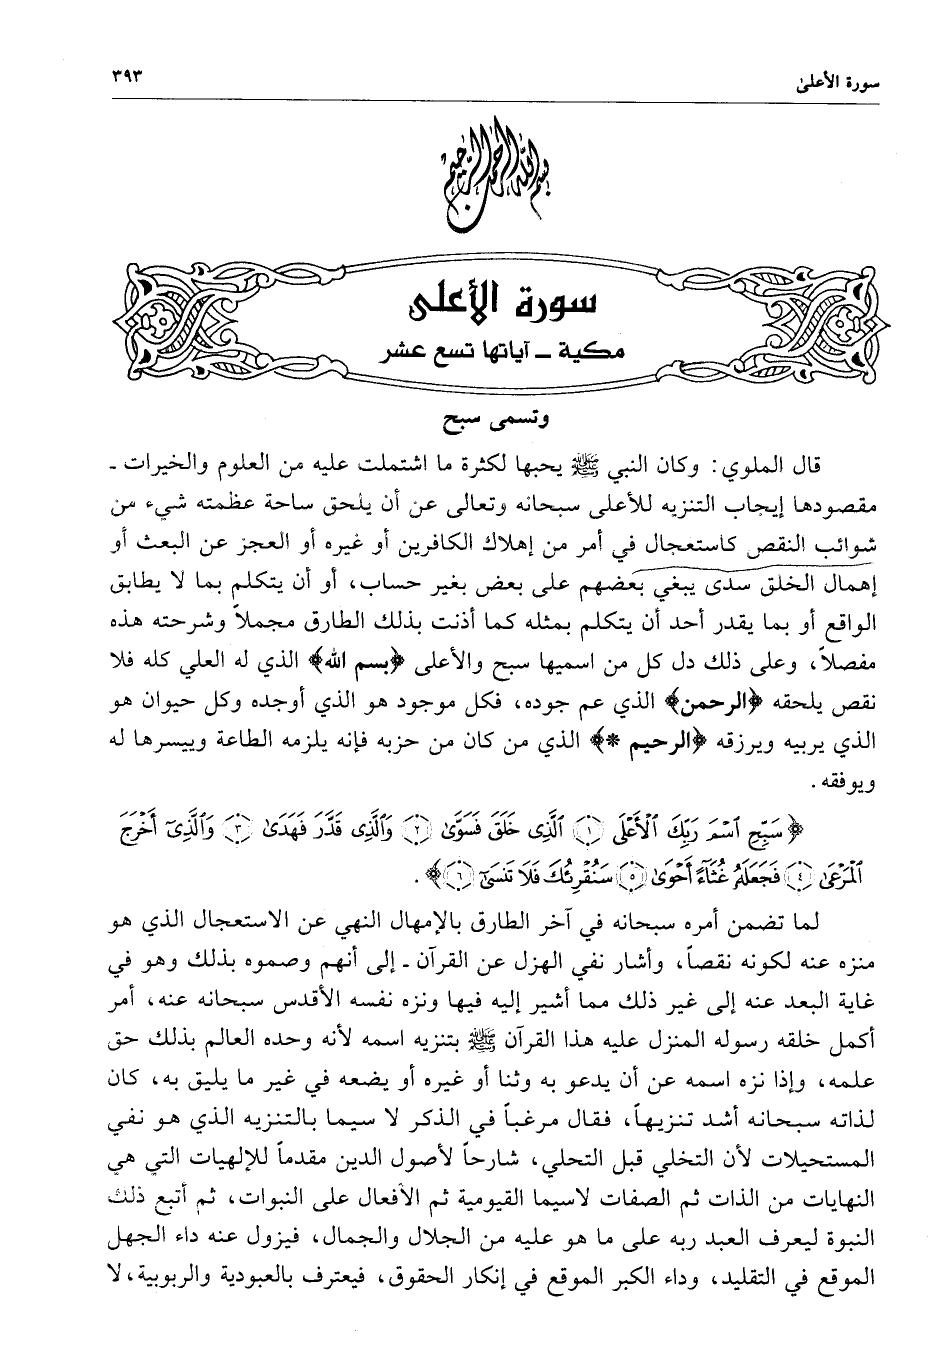 سورة الأعلى ٣٩٣
بسم الله الرحمن الرحيم
سورة الأعلى
مكية ــ آياتها تسع عشر
وتسمى سبح
قال الملوي: وكان النبي ﷺ يحبها لكثرة ما اشتملت عليه من العلوم والخيرات ـ
مقصودها إيجاب التنزيه للأعلى سبحانه وتعالى عن أن يلحق ساحة عظمته شيء من
شوائب النقص كاستعجال في أمر من إهلاك الكافرين أو غيره أو العجز عن البعث أو
إهمال الخلق سدى يبغي بعضهم على بعض بغير حساب، أو أن يتكلم بما لا يطابق
الواقع أو بما يقدر أحد أن يتكلم بمثله كما أذنت بذلك الطارق مجملاً وشرحته هذه
مفصلاً، وعلى ذلك دل كل من اسميها سبح والأعلى ﴿بسم الله﴾ الذي له العلي كله فلا
نقص يلحقه ﴿الرحمن﴾ الذي عم جوده، فكل موجود هو الذي أوجده وكل حيوان هو
الذي يربيه ويرزقه ﴿الرحيم *﴾ الذي من كان من حزبه فإنه يلزمه الطاعة وييسرها له
ويوفقه.
﴿سَبِّحِ ٱسْمَ رَبِّكَ ٱلْأَعْلَى ١ ٱلَّذِى خَلَقَ فَسَوَّىٰ ٢ وَٱلَّذِى قَدَّرَ فَهَدَىٰ ٣ وَٱلَّذِىٓ أَخْرَجَ
ٱلْمَرْعَىٰ ٤ فَجَعَلَهُۥ غُثَآءً أَحْوَىٰ ٥ سَنُقْرِئُكَ فَلَا تَنسَىٰٓ ٦﴾.
لما تضمن أمره سبحانه في آخر الطارق بالإمهال النهي عن الاستعجال الذي هو
منزه عنه لكونه نقصاً، وأشار نفي الهزل عن القرآن ـ إلى أنهم وصموه بذلك وهو في
غاية البعد عنه إلى غير ذلك مما أشير إليه فيها ونزه نفسه الأقدس سبحانه عنه، أمر
أكمل خلقه رسوله المنزل عليه هذا القرآن ﷺ بتنزيه اسمه لأنه وحده العالم بذلك حق
علمه، وإذا نزه اسمه عن أن يدعو به وثنا أو غيره أو يضعه في غير ما يليق به، كان
لذاته سبحانه أشد تنزيهاً، فقال مرغباً في الذكر لا سيما بالتنزيه الذي هو نفي
المستحيلات لأن التخلي قبل التحلي، شارحاً لأصول الدين مقدماً للإلهيات التي هي
النهايات من الذات ثم الصفات لاسيما القيومية ثم الأفعال على النبوات، ثم أتبع ذلك
النبوة ليعرف العبد ربه على ما هو عليه من الجلال والجمال، فيزول عنه داء الجهل
الموقع في التقليد، وداء الكبر الموقع في إنكار الحقوق، فيعترف بالعبودية والربوبية، لا